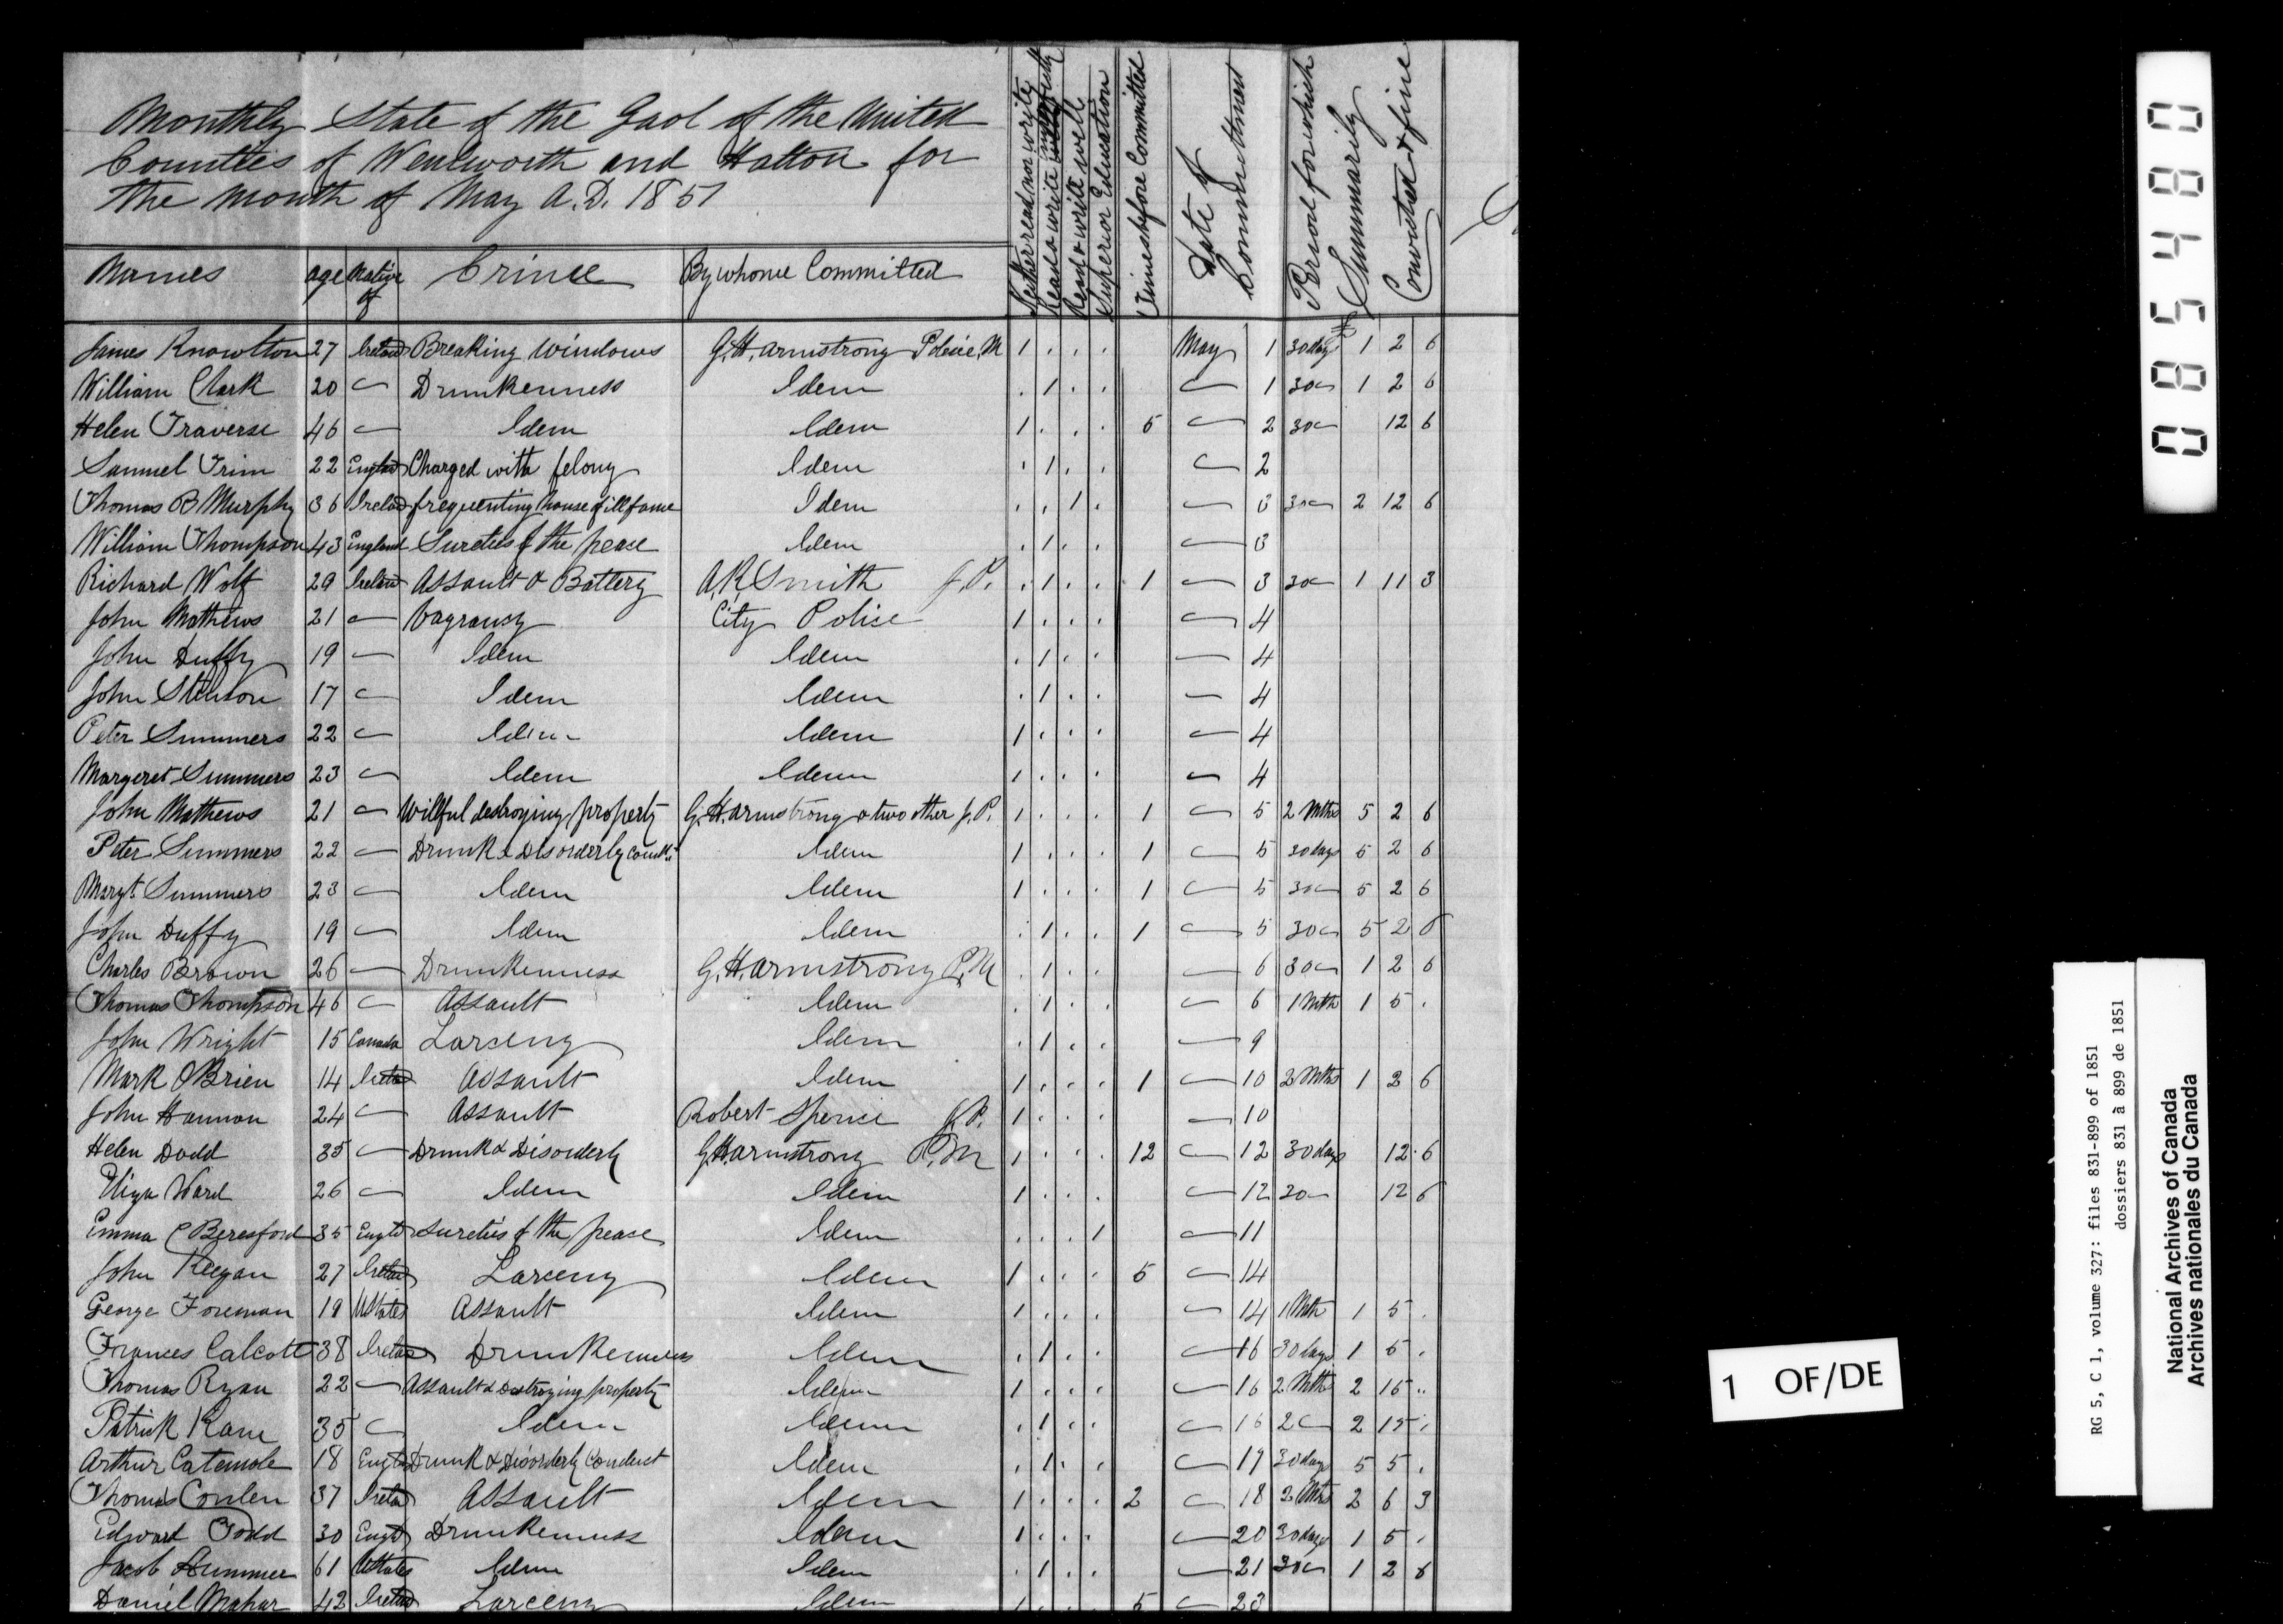 Monthly State of the Gaol of the United
Counties of Wentworth and Halton for
the month of May A.D. 1851
Names age Native of Crime By whome Committed Neither read nor write Read & write imperfectly Read & write well Superior Education Times before Committed Date of Committment Period for which Summarily Convicted & fine
James Knowlton 27 Ireland Breaking windows G.H. Armstrong Police M 1 . . . May 1 30 days 1 2 6
William Clark 20 — Drunkenness Idem . 1 . . — 1 30 — 1 2 6
Helen Traverse 46 — Idem Idem 1 . . . 5 — 2 30 — 12 6
Samuel Trim 22 England Charged with felony Idem . 1 . . — 2
Thomas B Murphy 36 Ireland frequenting house of ill fame Idem . . 1 . — 3 30 — 2 12 6
William Thompson 43 England Sureties of the peace Idem . 1 . . — 3
Richard Wolf 29 Ireland Assault & Battery A,R,Smith J.P. . 1 . . 1 — 3 30 — 1 11 3
John Mathews 21 — Vagrancy City Police 1 . . . — 4
John Duffy 19 — Idem Idem . 1 . . — 4
John Stinson 17 — Idem Idem . 1 . . — 4
Peter Summers 22 — Idem Idem 1 . . . — 4
Margeret Summers 23 — Idem Idem 1 . . . — 4
John Mathews 21 — Willful destroying property G.H. Armstrong & two other J.P. 1 . . . 1 — 5 2 Mths 5 2 6
Peter Summers 22 — Drunk & Disorderly Idem 1 . . . 1 — 5 30 days 5 2 6
Margt. Summers 23 — Idem Idem 1 . . . 1 — 5 30 — 5 2 6
John Duffy 19 — Idem Idem . 1 . . 1 — 5 30 — 5 2 6
Charles Brown 26 — Drunkenness G.H. Armstrong P.M . 1 . . — 6 30 — 1 2 6
Thomas Thompson 46 — Assault Idem . 1 . . — 6 1 Mth 1 5 .
John Wright 15 Canada Larceny Idem . 1 . . — 9
Mark OBrien 14 Ireland Assault Idem 1 . . . 1 — 10 2 Mths 1 2 6
John Hannon 24 — Assault Robert Spence J.P. 1 . . . — 10
Helen Dodd 35 — Drunk & Disorderly G.H. Armstrong P.M 1 . . . 12 — 12 30 days 12 6
Eliza Ward 26 — Idem Idem 1 . . . — 12 30 — 12 6
Emma C Beresford 35 Engld Sureties of the peace Idem . . . 1 — 11
John Keegan 27 Ireland Larceny Idem 1 . . . 5 — 14
George Foreman 19 UStates Assault Idem 1 . . . — 14 1 Mth 1 5 .
Frances Calcott 38 Ireland Drunkenness Idem . 1 . . — 16 30 days 1 5 .
Thomas Ryan 22 — Assault & Destroying property Idem 1 . . . — 16 2 Mths 2 15 ..
Patrick Kane 35 — Idem Idem . 1 . . — 16 2 — 2 15 .
Arthur Catemole 18 Engld Drunk & Disorderly Conduct Idem . 1 . . — 17 30 days 5 5 .
Thomas Conlen 37 Ireland Assault Idem 1 . . . 2 — 18 2 Mths 2 6 3
Edward Todd 30 Engld Drunkenness Idem 1 . . . — 20 30 days 1 5 .
Jacob Hummer 61 UStates Idem Idem . 1 . . — 21 30 — 1 2 6
Daniel Mahar 42 Ireland Larceny Idem 1 . . . 5 — 23
085480
RG 5, C 1, volume 327: files 831-899 of 1851
dossiers 831 à 899 de 1851
National Archives of Canada
Archives nationales du Canada
1 OF/DE